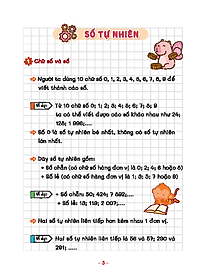 SỐ TỰ NHIÊN
1 Chữ số và số
Người ta dùng 10 chữ số 0, 1, 2, 3, 4, 5, 6, 7, 8, 9 để
viết thành các số.
Ví dụ: Từ 10 chữ số 0; 1; 2; 3; 4; 5; 6; 7; 8; 9
ta có thể viết được các số khác nhau như 24;
123; 1 898;.....
Số 0 là số tự nhiên bé nhất, không có số tự nhiên
lớn nhất.
Dãy số tự nhiên gồm:
+ Số chẵn (có chữ số hàng đơn vị là 0; 2; 4; 6 hoặc 8)
+ Số lẻ (có chữ số hàng đơn vị là 1; 3; 5; 7 hoặc 9)
Ví dụ: + Số chẵn: 50; 424; 7 592;....
+ Số lẻ: 13; 119; 2 007;....
Hai số tự nhiên liên tiếp hơn kém nhau 1 đơn vị.
Ví dụ: Hai số tự nhiên liên tiếp là 56 và 57; 290 và
291;.....
- 3 -